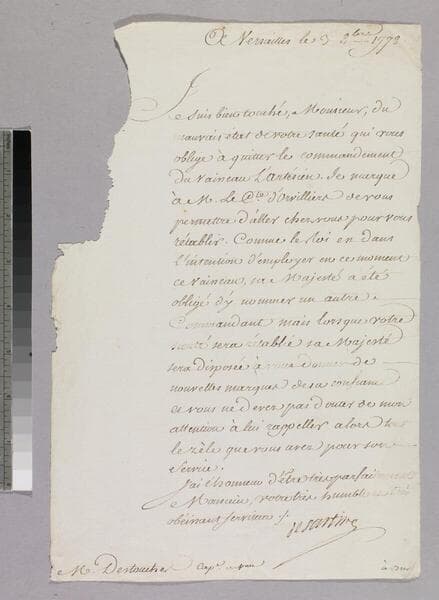 A Versailles le 3 8bre 1778
Je suis bien touché, Monsieur, du
mauvais état de votre santé qui vous
oblige à quitter le commandement
du vaisseau L'artésien. Je marque
à M. Le Cte d'orvilliers de vous
permettre d'aller chez vous pour vous
rétablir. Comme le Roi est dans
l'intention d'employer en ce moment
ce vaisseau, sa Majesté a été
obligé d'y nommer un autre
Commandant mais lorsque votre
santé sera établie sa Majesté
sera disposée à vous donner de
nouvelles marques de sa confiance
et vous ne devez pas douter de mon
attention à lui rappeller alors tout
le zèle que vous avez pour son
Service.
J'ai l'honneur d'être très parfaitement
Monsieur, votre très humble et très
obéissant serviteur
de Sartine
M. Destouches Capne de Vau